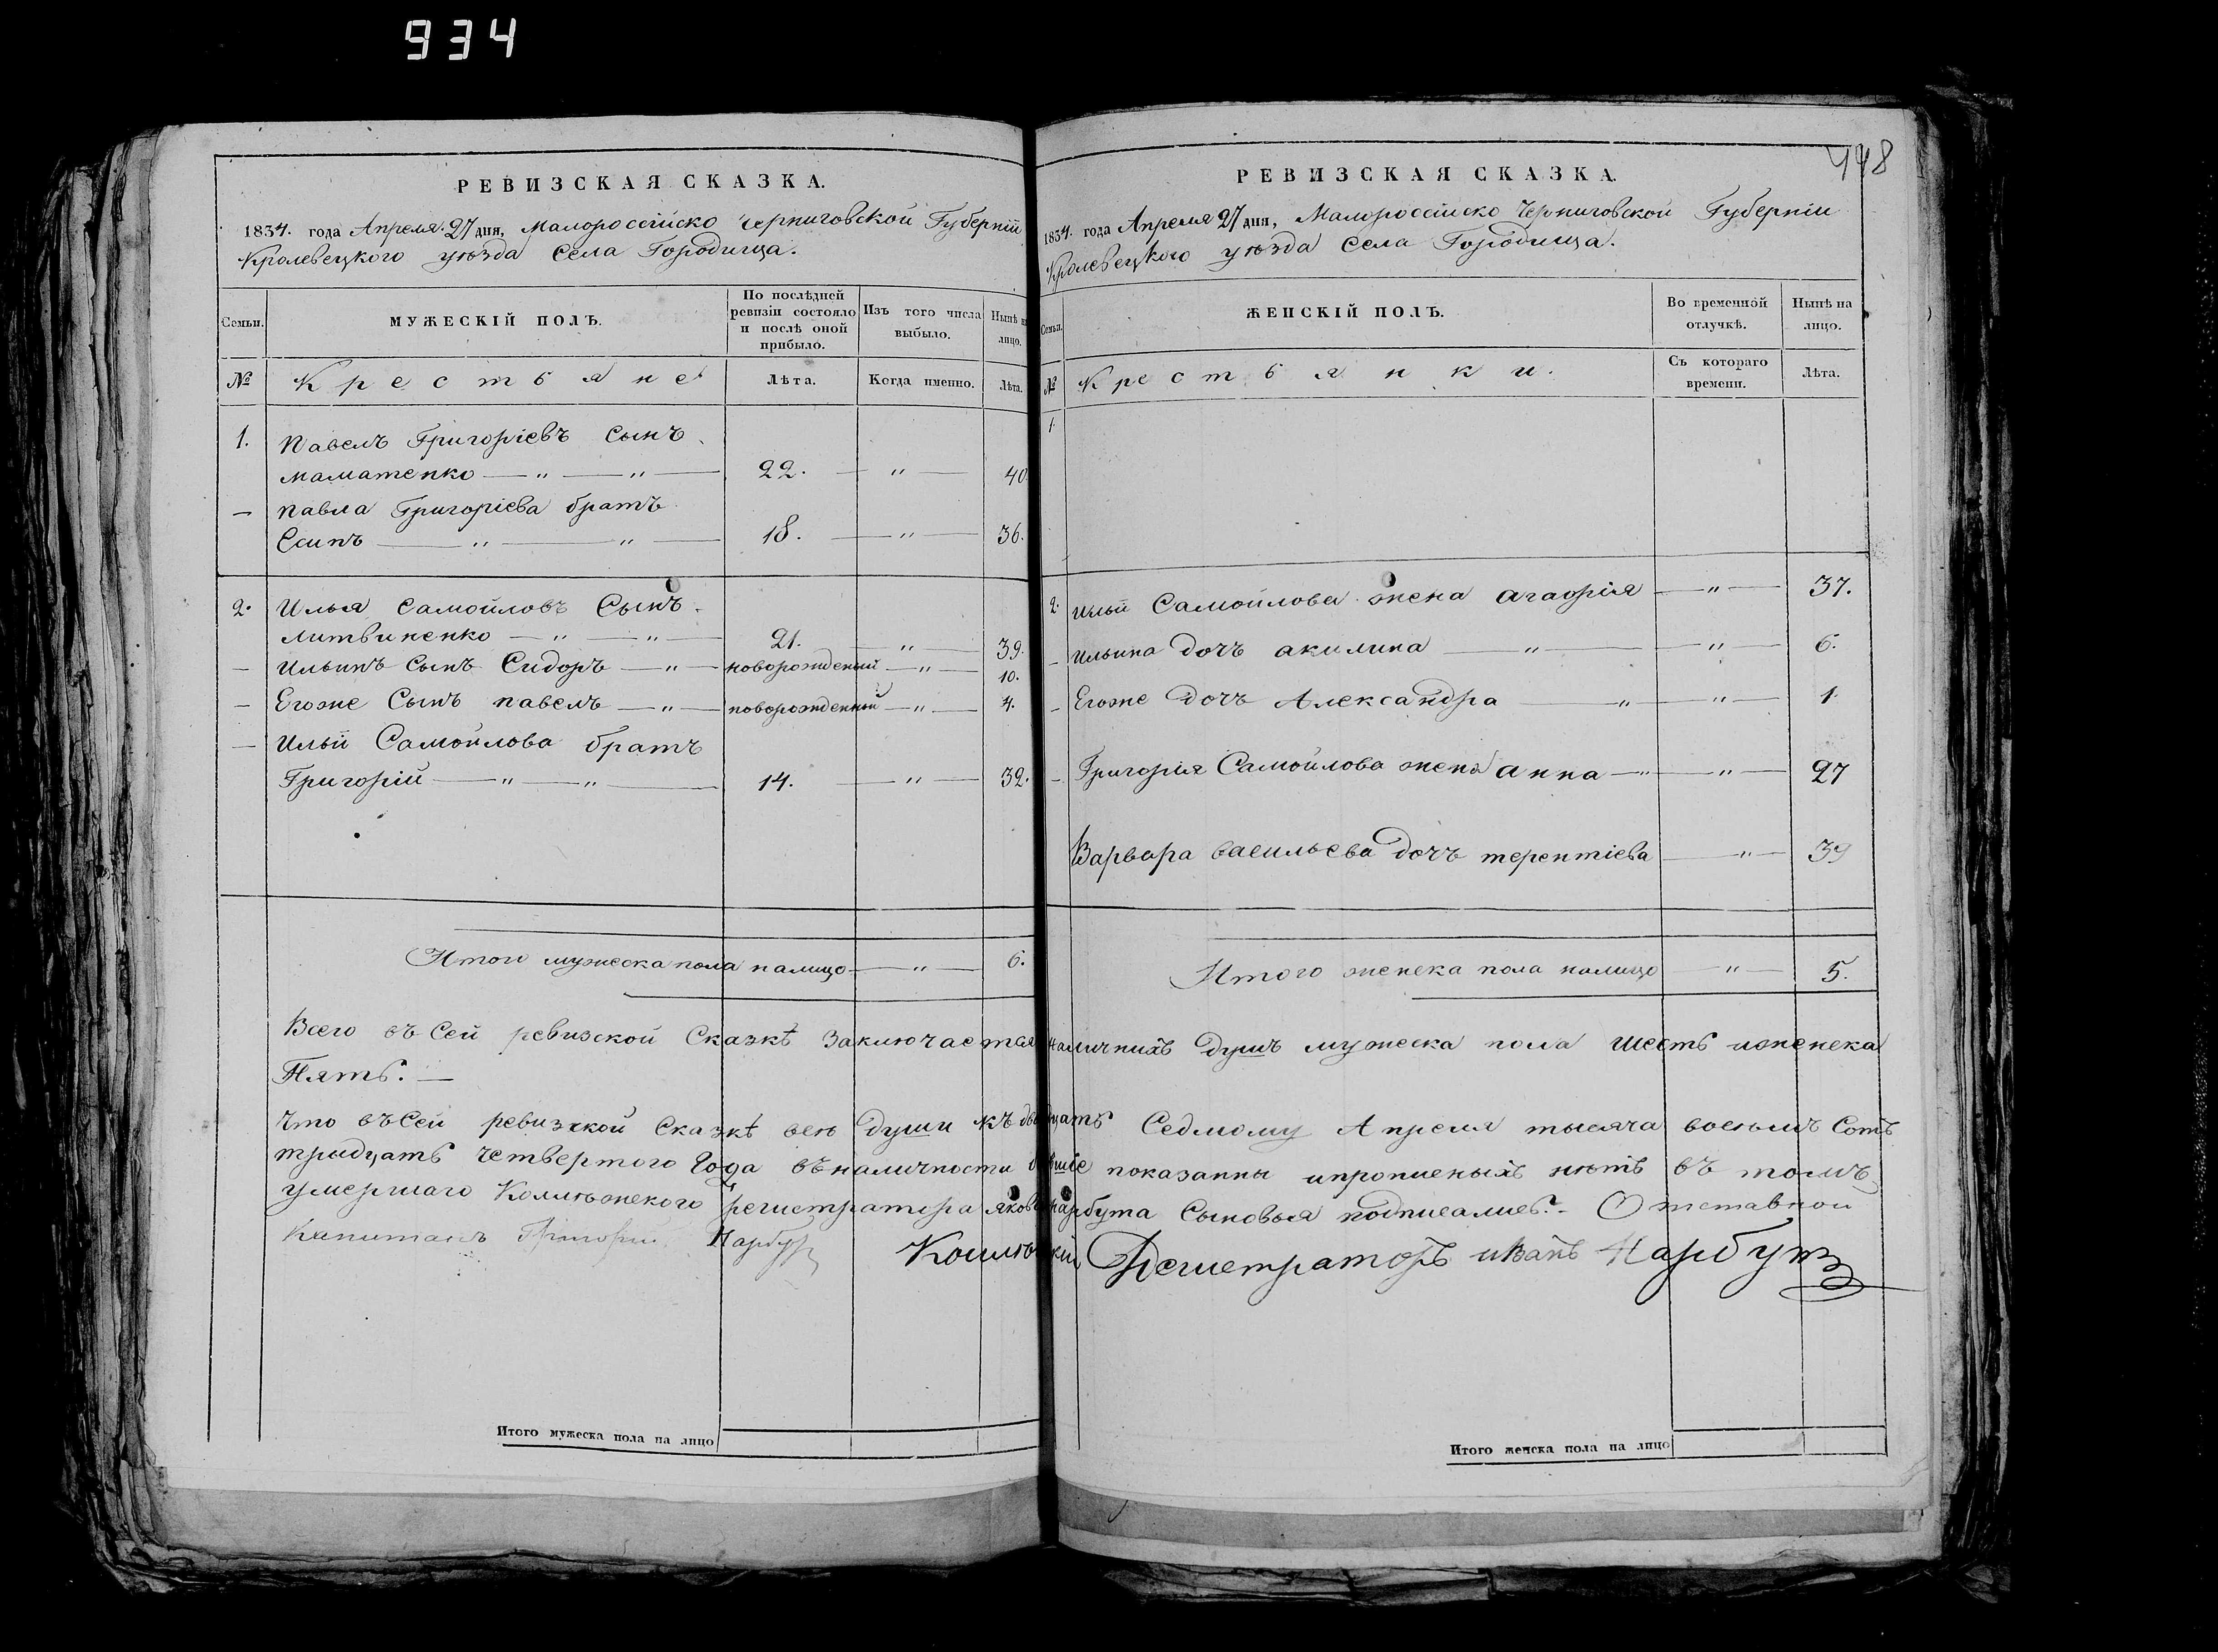 934
РЕВИЗСКАЯ СКАЗКА.
1834. года Апреля 27 дня, Малороссійско Черниговской Губерніи
Кролевецкого уѣзда Села Городища.
Семьи.
МУЖЕСКІЙ ПОЛЪ.
По послѣдней ревизіи состояло и послѣ оной прибыло.
Изъ того числа выбыло.
Нынѣ на лицо.
№ Крестьяне Лѣта. Когда именно. Лѣта.
1. Павелъ Григоріевъ Сынъ
маматенко — " — " — 22. — " — 40.
— Павла Григоріева братъ
Есипъ — " — " — 18. — " — 36.
2. Илья Самойловъ Сынъ
Литвиненко — " — " — 21. " 39.
— Ильинъ Сынъ Сидоръ — " — новорожденный — " — 10.
— Егоже Сынъ павелъ — " — новорожденный — " — 4.
— Ильи Самойлова братъ
Григорій — " — " — 14. — " — 32.
Итого мужеска пола налицо — " — 6.
448
РЕВИЗСКАЯ СКАЗКА.
1834. года Апреля 27 дня, Малороссійско Черниговской Губерніи
Кролевецкого уѣзда Села Городища.
Семьи.
ЖЕНСКІЙ ПОЛЪ.
Во временной отлучкѣ.
Нынѣ на лицо.
№ Крестьянки. Съ котораго времени. Лѣта.
1.
2. Ильи Самойлова жена агафія — " — 37.
— Ильина дочъ акилина — " — " — 6.
— Егоже дочъ Александра " — " — 1.
— Григорія Самойлова жена анна — " — " — 27
Варвара васильева дочъ терентіева — " — 39
Итого женска пола налицо — " — 5.
Всего въ Сей ревизской Сказкѣ заключается наличныхъ душъ мужеска пола шесть иженска
Пять. —
Что въСей ревизской Сказкѣ всѣ души къ двадцать Седмому Апреля тысяча восемъ Сотъ
тридцать четвертого Года въналичности бывшіе показанны ипрописныхъ нѣтъ въ томъ
умершаго Коллѣжекого регистратора якова нарбута Сыновья подписались. - Отставной
Капитанъ Григорий Нарбутъ Коллѣжскій Регистраторъ иванъ Нарбутъ
Итого мужеска пола на лицо
Итого женска пола на лицо